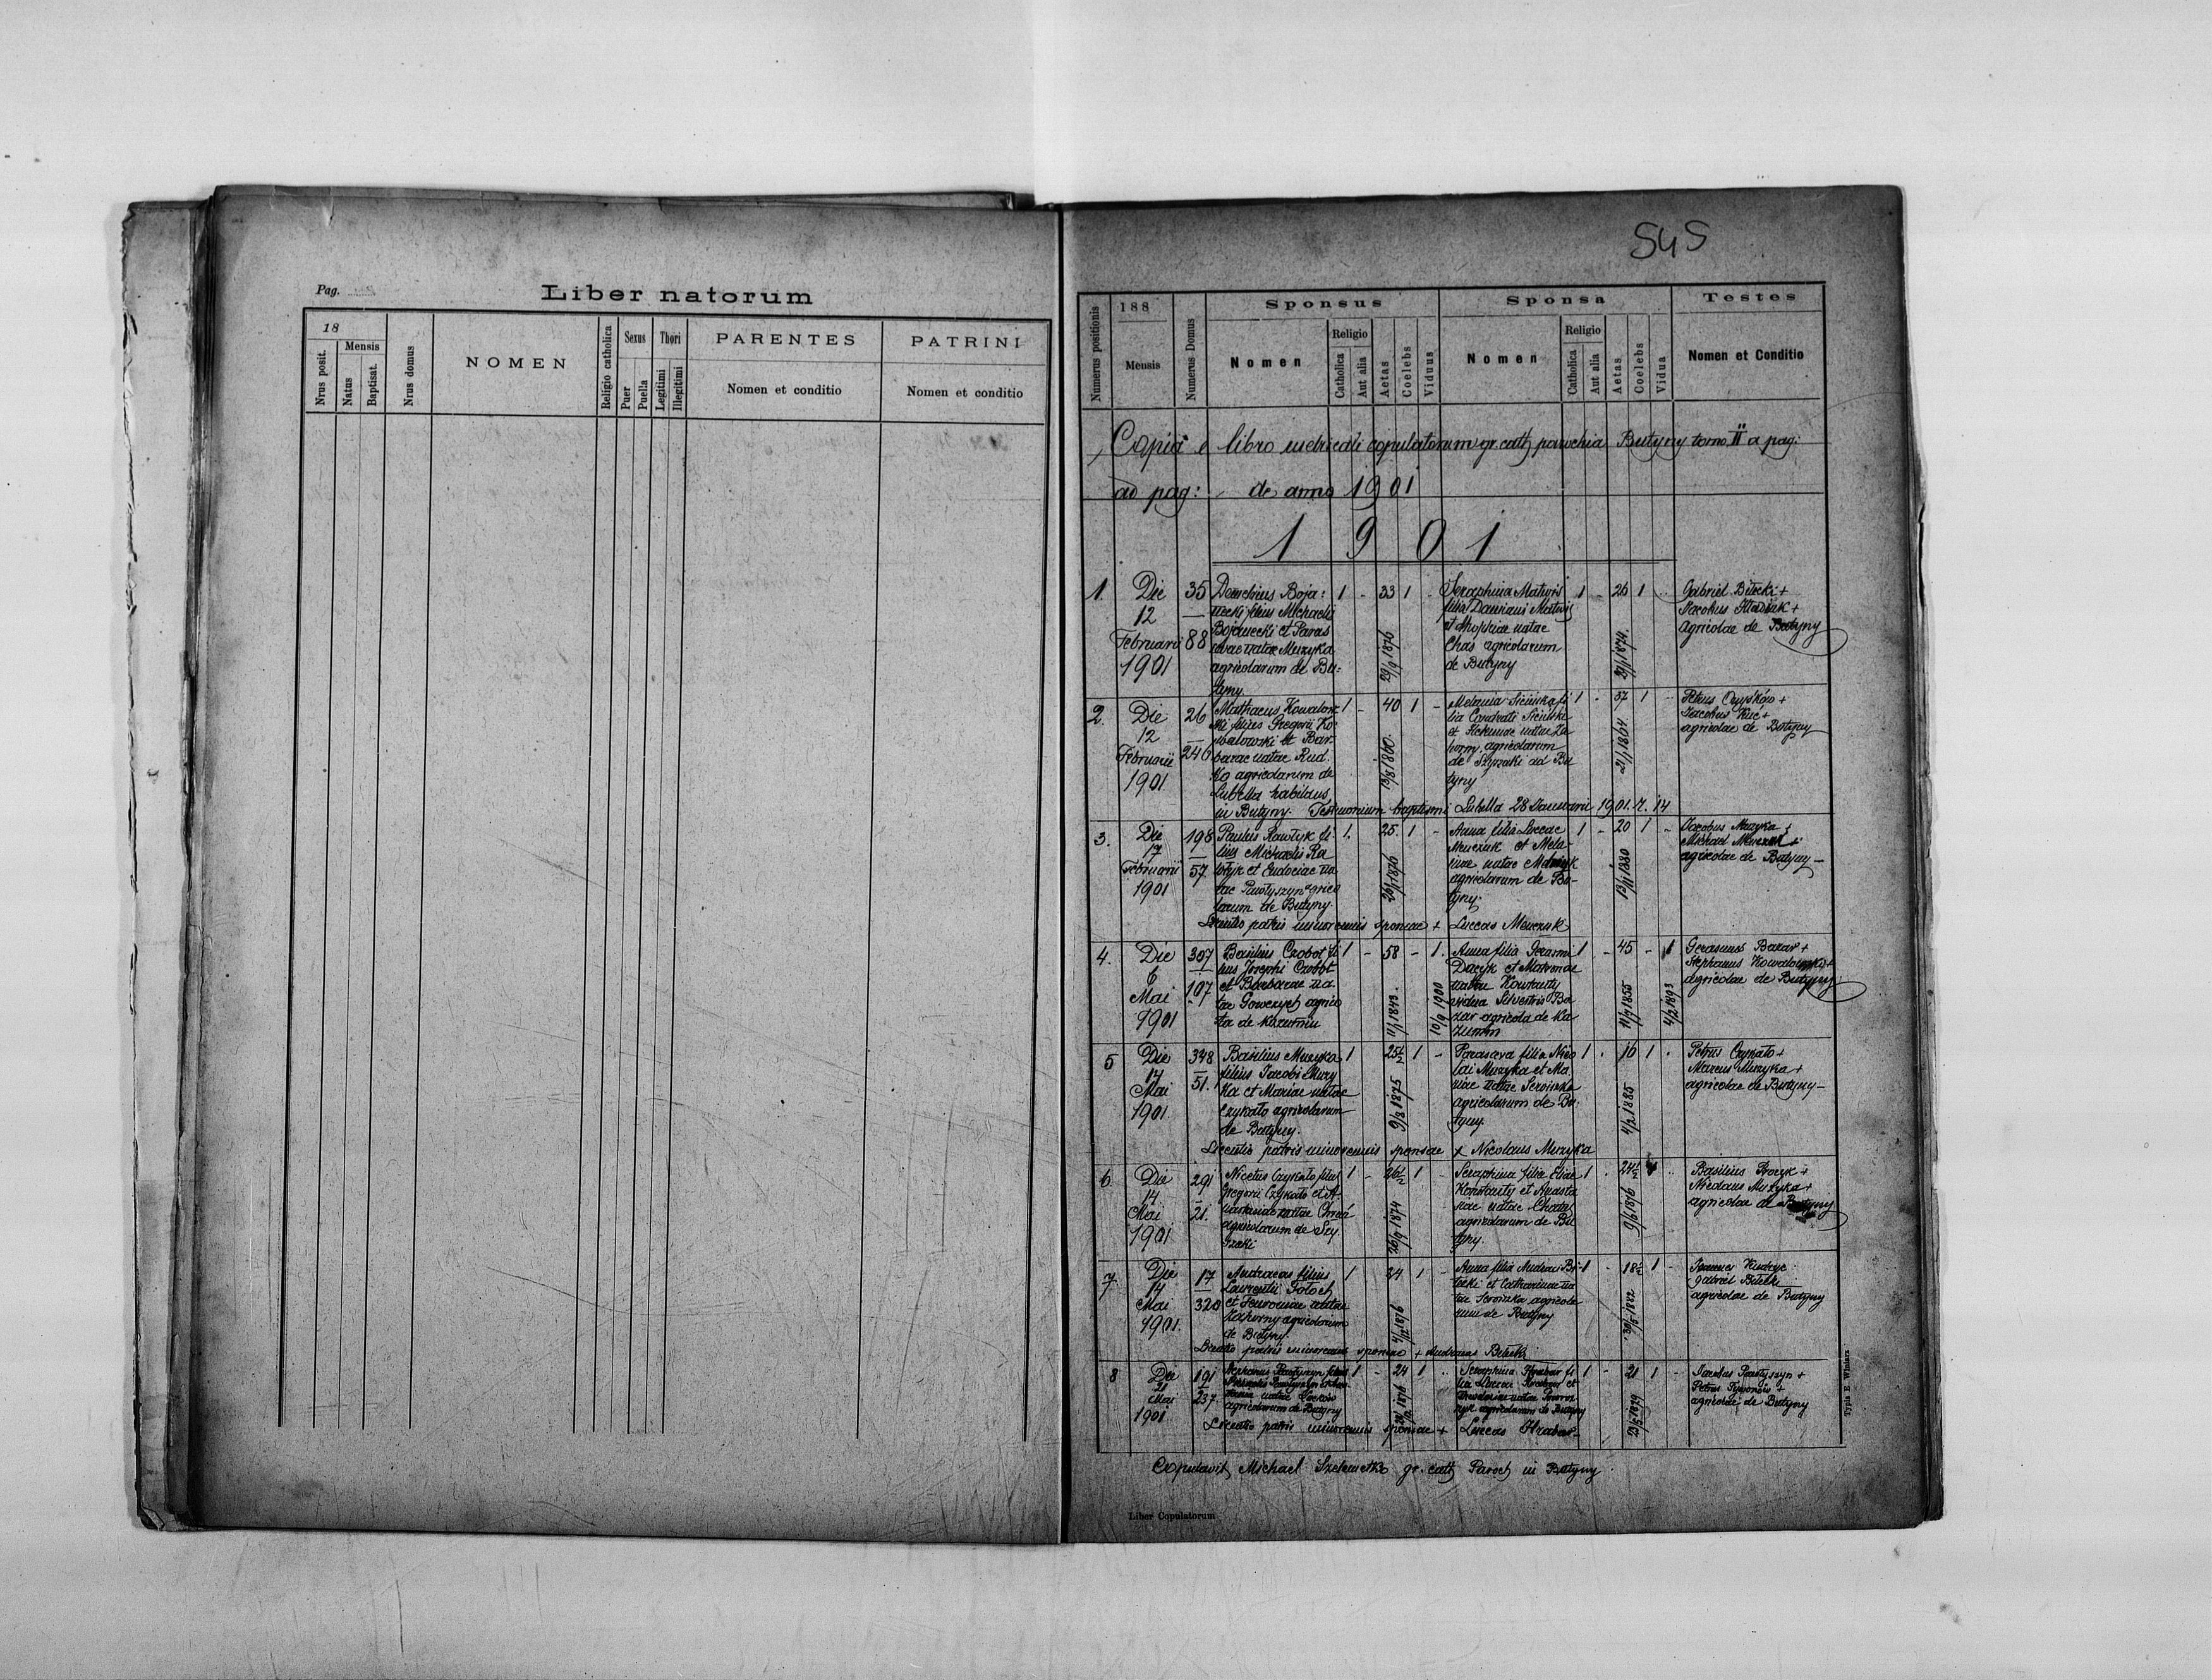 Pag.
Liber natorum
18
Nrus posit.
Mensis
Natus
Baptisat.
Nrus domus
NOMEN
Religio catholica
Sexus
Puer
Puella
Thori
Legitimi
Illegitimi
PARENTES
Nomen et conditio
PATRINI
Nomen et conditio
545
Numerus positionis
188
Mensis
Numerus Domus
Sponsus
Nomen
Religio
Catholica
Aut alia
Aetas
Coelebs
Viduus
Sponsa
Nomen
Religio
Catholica
Aut alia
Aetas
Coelebs
Vidua
Testes
Nomen et Conditio
Copia e libro metricali copulatorum gr. cath. parochia Butyny tomo II a pag:
ad pag: de anno 1901
1901
1. Die 12 Februarii 1901
35 88
Demetrius Boja:
necki filius Michaeli
Bojanecki et Paras
cevae natae Muzyka
agricolarum de Bu:
tyny
1 - 33 1 -
29/9 1876
Seraphina Matwijs
filia Damiani Matwij
natae
Chas agricolarum
de Butyny
1 - 26 1
1874
Gabriel Bilecki +
Jacobus +
agricolae de Butyny
2. Die 12 Februarii 1901
26 246
Mathaeus Kowalow
ski filius Gregorii Ko
walowski et Bar
barae natae Rud
ka agricolarum de
Lubella habitans
in Butyny. Testimonium baptismi Lubella 28 Januarii 1901. N. 14
1 - 40 1 -
13/8 1860
Melania fi
lia
et natae Za
horny agricolarum
de Szyszaki ad Bu
tyny
1 - 37 1
21/1 1864
Petrus +
Jacobus Kuc +
agricolae de Butyny
3. Die 17 Februarii 1901
198 57
Paulus fi:
lius Michaelis
et Eudociae na
tae Pawlyszyn agrico
larum de Butyny.
1. 25. 1 -
1876
Anna filia Luccae
Menczuk et Mela
niae natae
agricolarum de Bu-
tyny.
1 - 20 1 -
13/11 1880
Jacobus Muzyka +
Michael +
agricolae de Butyny
Licentio patris minorennis sponsae + Luccas Menczuk
4. Die 6 Mai 1901
307 107
Basilius Czobot fi
lius Josephi Czobot
et Barbarae na
tae agrico
la de Kazumin
1 - 58 - 1.
11/1 1843
10/9 1900
Anna filia
Dacyk et Matronae
natae Konstanty
vidua Silvestris Ba
zar agricola de Ka
zumin
1 - 45 - 1
11/9 1855
4/2 1893
Gerasimus Bazar +
Stephanus Kowalowski +
agricolae de Butyny
5 Die 14 Mai 1901
348 51.
Basilius Muzyka
filius Jacobi Muzy
ka et Mariae natae
Czykalo agricolarum
de Butyny.
1 25½ 1 -
9/8 1875
Parasceva filia Nico
lai Muzyka et Ma
riae natae Seroiczka
agricolarum de Bu
tyny.
1 . 16 1 .
4/2 1885
Petrus Czykalo +
Marcus Muzyka +
agricolae de Butyny
Licentio patris minorennis sponsae + Nicolaus Muzyka
6 Die 14 Mai 1901
291 21.
Nicetus Czykalo filius
Gregorii Czykalo et A-
nastasiae natae
agricolarum de Szy
szaki
1 - 26½ 1 -
26/9 1874
Seraphina filia Eliae
Konstanty et Anasta
siae natae
agricolarum de Bu
tyny.
1 . 24½
9/6 1876
Basilius +
Nicolaus Muzyka +
agricolae de Butyny
7. Die 14 Mai 1901.
17 320
Andraeas filius
Laurentii
et natae
Zahorny agricolarum
de Butyny.
1 24 1
1876
Anna filia Andraei Bi-
lecki et Catharinae na
tae Seroiczka agricola
rum de Butyny
1 - 18½ 1 -
1882
Gabriel Bilecki
agricolae de Butyny
Licentio patris minorennis sponsae + Andraeas Bilecki
8 Die 21 Mai 1901
191 237
natae
agricolarum de Butyny
1 - 24 1
1876
Seraphina Hrabar fi
lia Luccae Hrabar et
natae
agricolarum de Butyny
1 - 21 1
1879
Jacobus Pawlyszyn +
Petrus +
agricolae de Butyny
Licentio patris minorennis sponsae + Luccas Hrabar
Copulavit Michael gr. cath Paroch in Butyny
Liber Copulatorum
Typis E. Winiarz